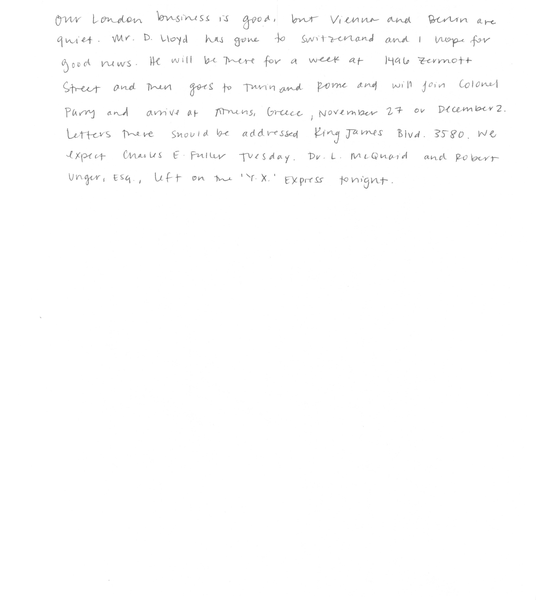 Our London business is good, but Vienna and Berlin are
quiet. Mr. D. Lloyd has gone to Switzerland and I hope for
good news. He will be there for a week at 1496 Zermott
Street and then goes to Turin and Rome and will join Colonel
Parry and arrive at Athens, Greece, November 27 or December 2.
Letters there should be addressed King James Blvd. 3580. We
expect Charles E. Fuller Tuesday. Dr. L. McQuaid and Robert
Unger, Esq., left on the 'Y.X.' Express tonight.